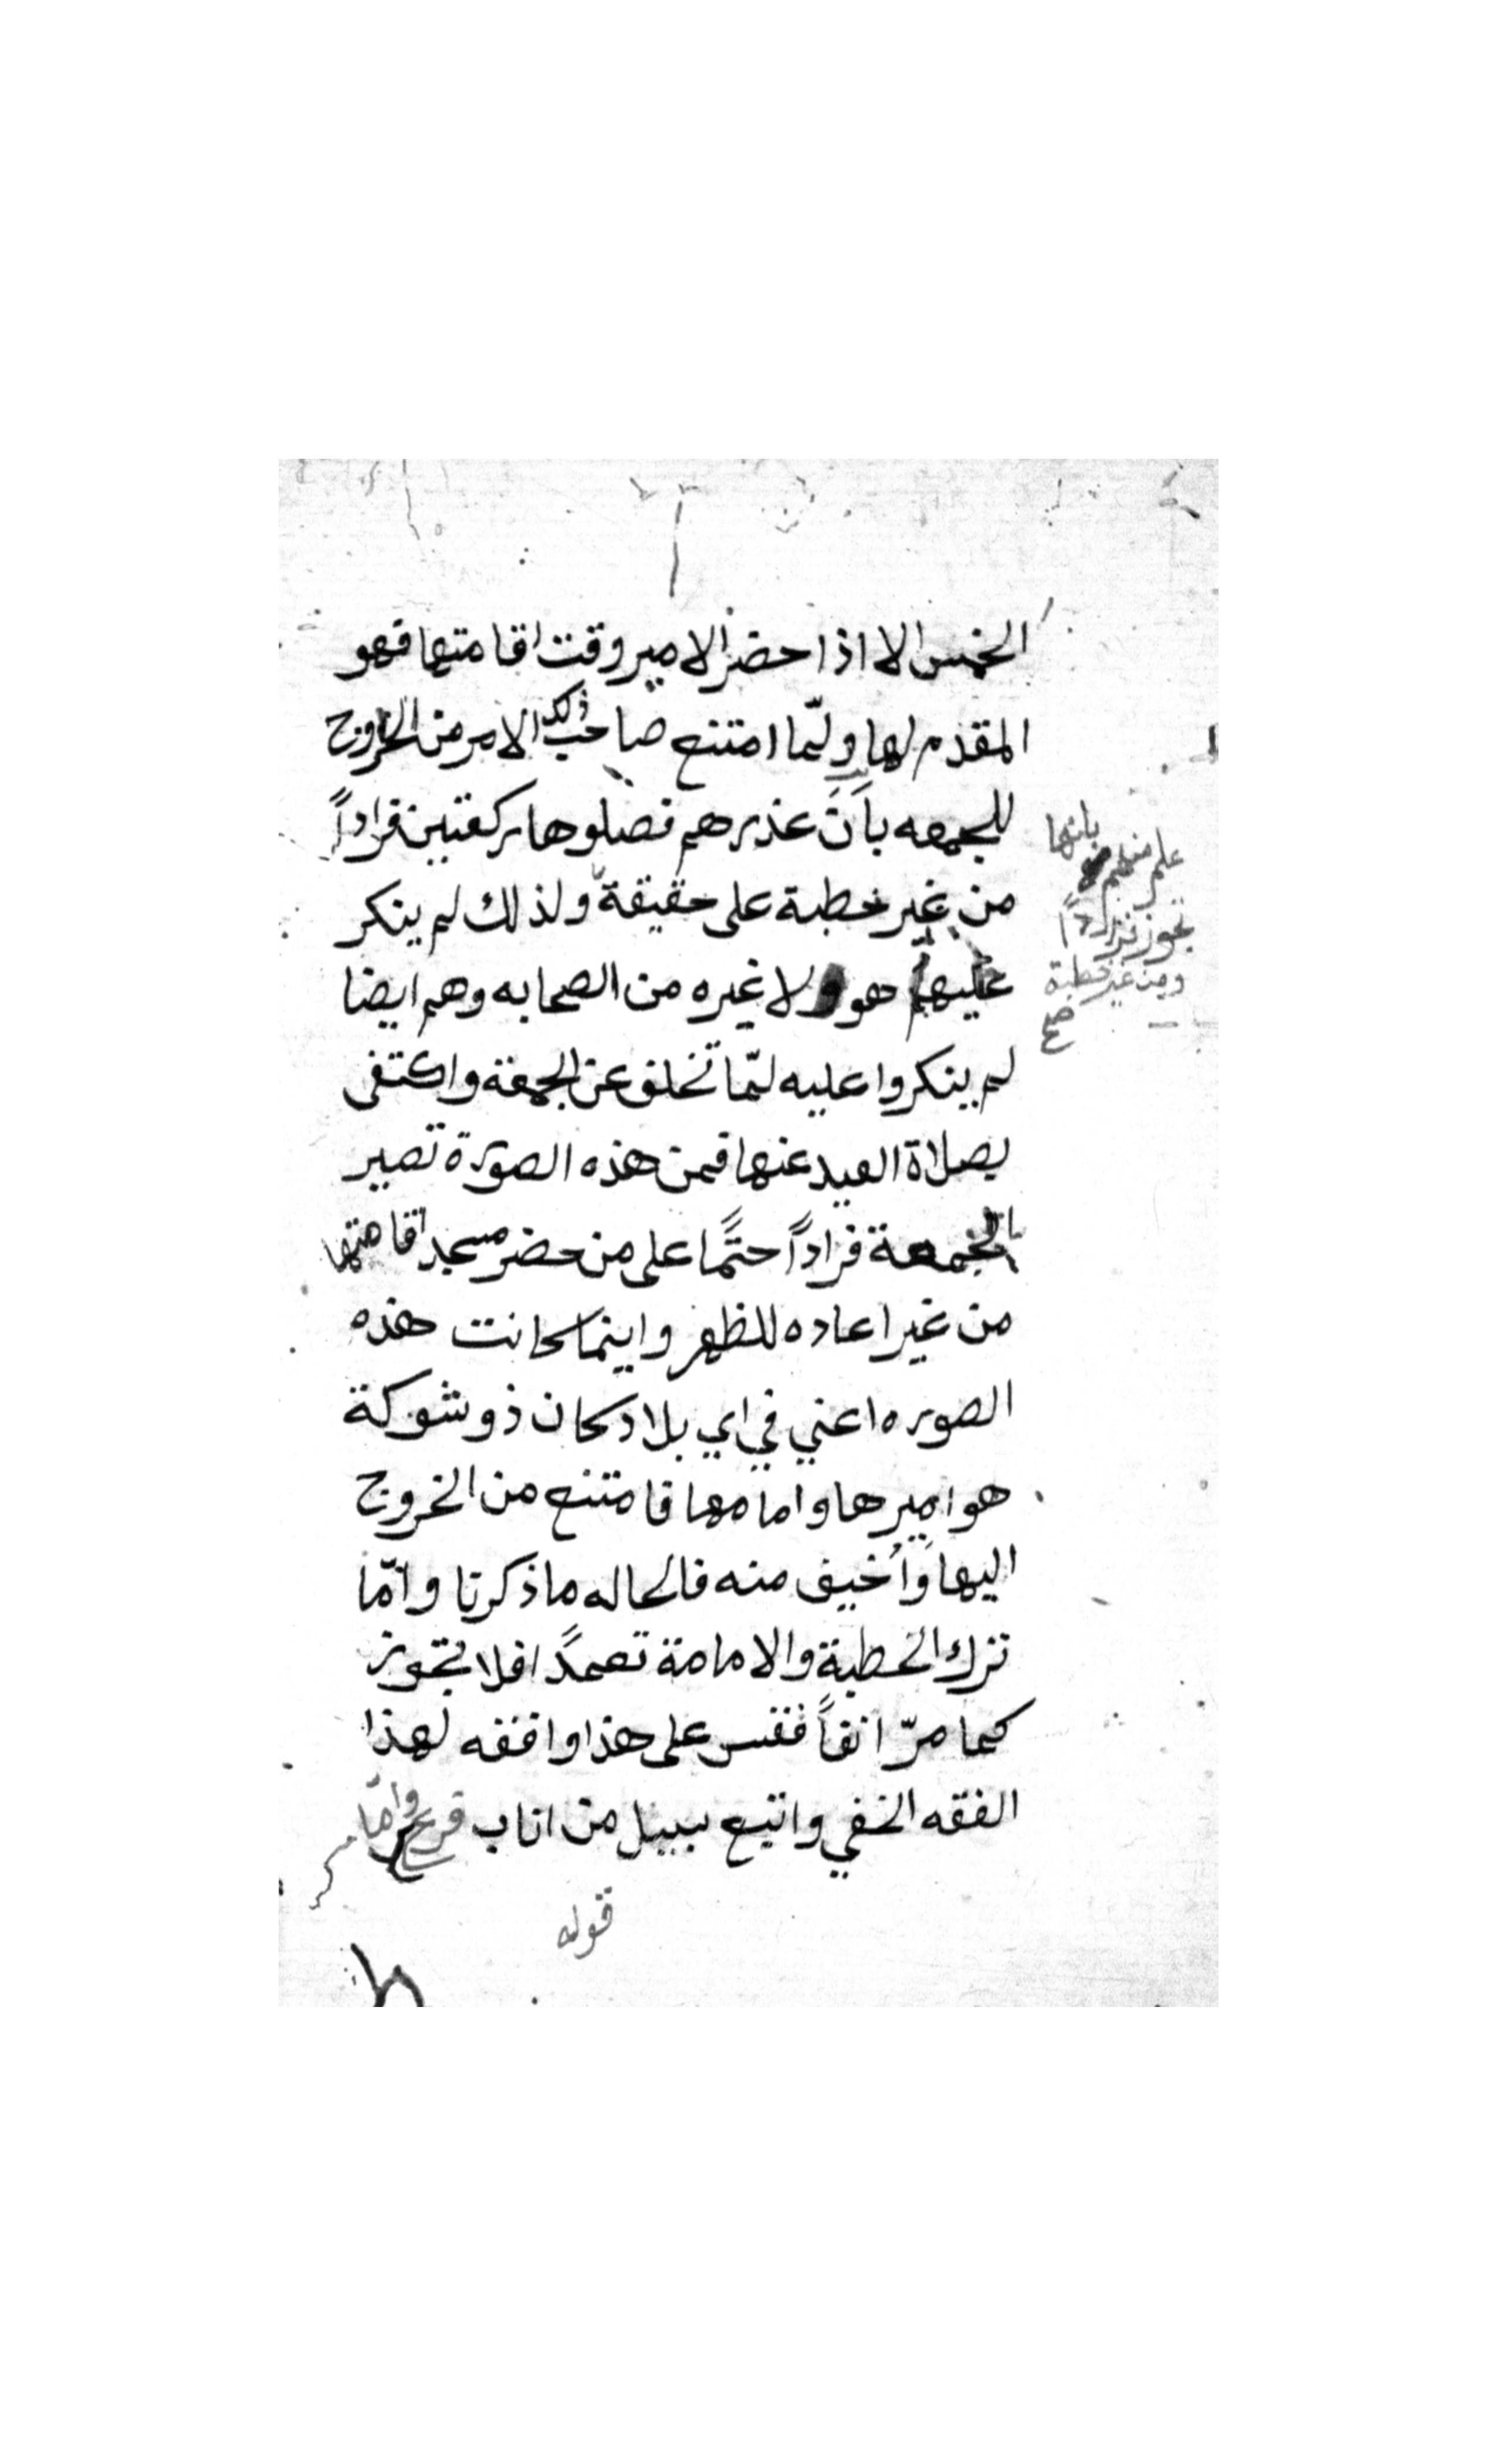 الخمس الا اذا حضر الامير وقت اقامتها فهو
المقدم لها ولمّا امتنع صاحب ذلك الامر من الخروج
للجمعه بأنَ عذرهم فصلوها ركعتين فراداً
من غير خطبة على حقيقة ولذلك لم ينكر
عليهم هو ولا غيره من الصحابه وهم ايضا
لم ينكروا عليه لمّا تخلف عن الجمعة واكتفى
بصلاة العيد عنها فمن هذه الصورة تصير
الجمعة فراداً حتمًا على من حضر مسجد اقامتها
من غير اعاده للظهر واينما كانت هذه
الصوره اعني في اي بلاد كان ذو شوكة
هو اميرها وامامها فامتنع من الخروج
اليها وَأُخيف منه فالحاله ما ذكرنا وامّا
ترك الخطبة والامامة تعمدًا فلا يجوز
كما مرّ انفاً فقس على هذا وافقه لهذا
الفقه الخفي واتبع سبيل من اناب فرع وامّا
قوله
علم منهم بانها
تجوز فراداً
ومن غير خطبة
صح